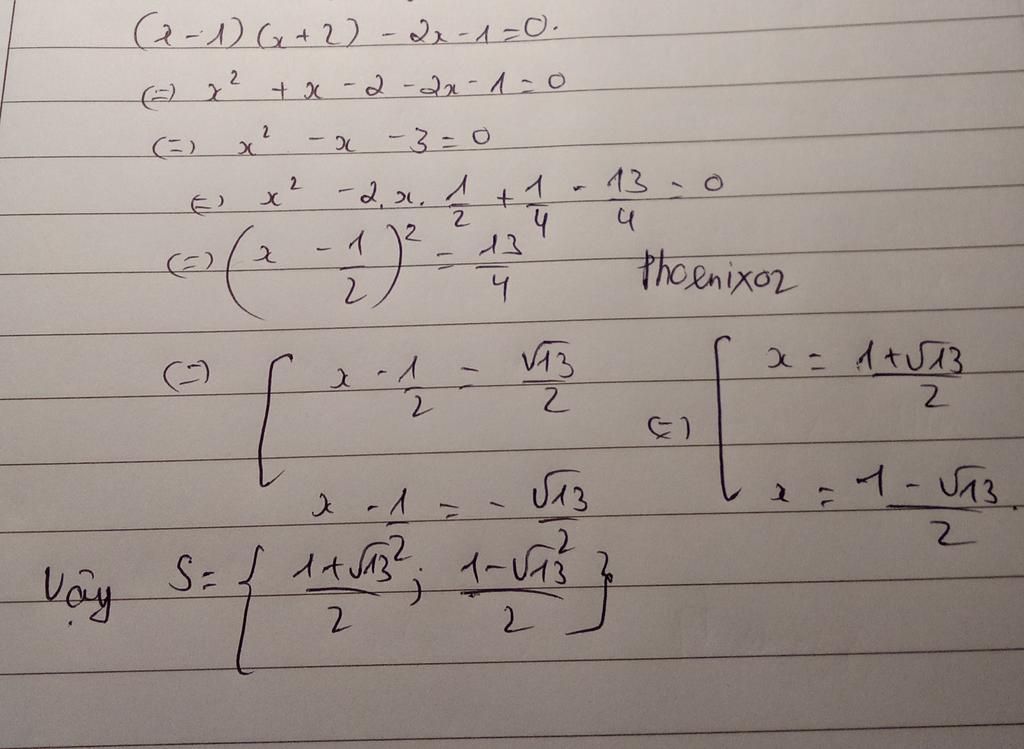 (x-1)(x+2) - 2x-1=0.
(=) x² + x - 2 - 2x - 1 = 0
(=) x² - x - 3 = 0
(=) x² - 2.x. 1/2 + 1/4 - 13/4 = 0
(=) (x - 1/2)² = 13/4
Phoenix02
(=) [ x - 1/2 = √13/2 (=) [ x = 1+√13/2
x - 1/2 = - √13/2 x = 1-√13/2.
Vậy S = { 1+√13/2 ; 1-√13/2 }